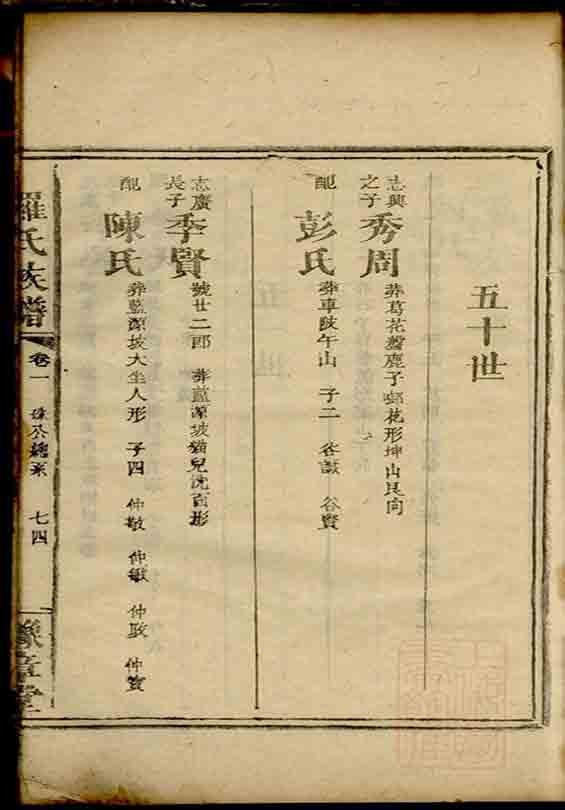 五十世
志興之子 秀周 葬葛花灣鹿子啣花形坤山艮向
配 彭氏 葬車陂午山 子二 谷誠 谷賢
志廣長子 季賢 號廿二郎 葬藍源坡猫兒洗面形
配 陳氏 葬藍源坡大坐人形 子四 仲敬 仲敏 仲政 仲實
羅氏族譜 卷一 珠公總系 七四 豫章堂